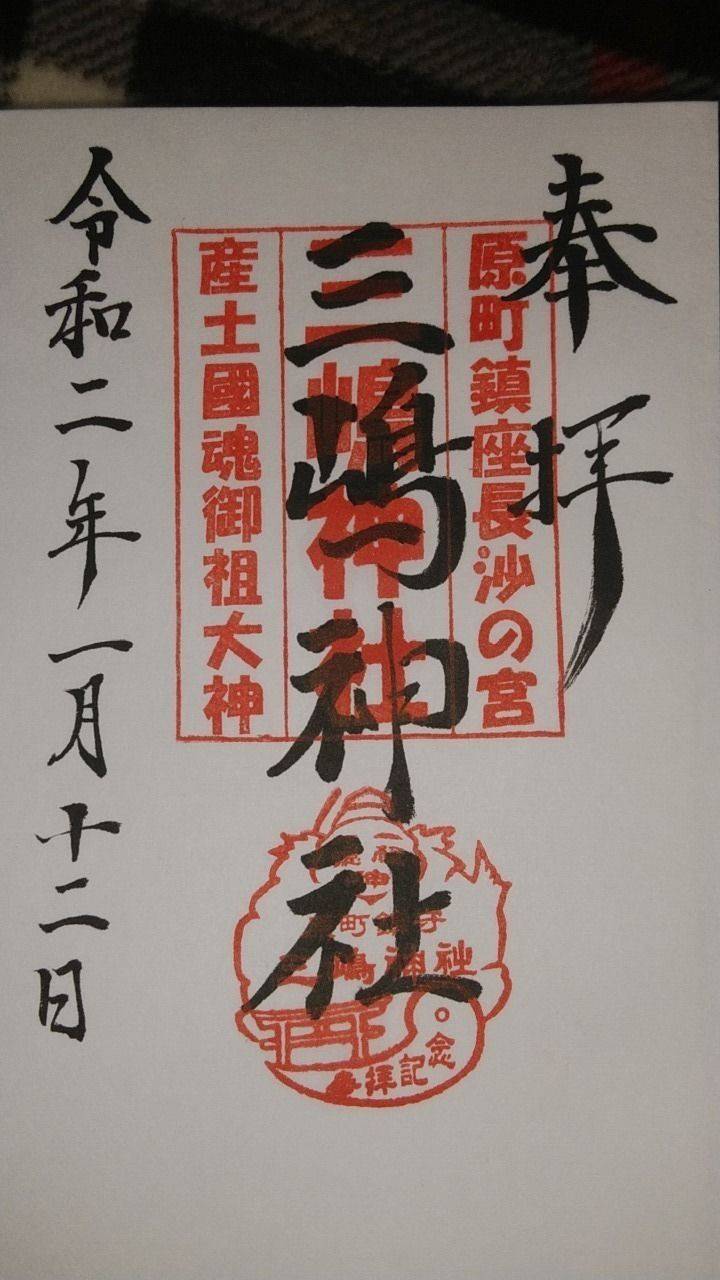 奉拝
原町鎮座長沙の宮
三嶋神社
三嶋神社
産土國魂御祖大神
令和二年一月十二日
三嶋神社
拝記念